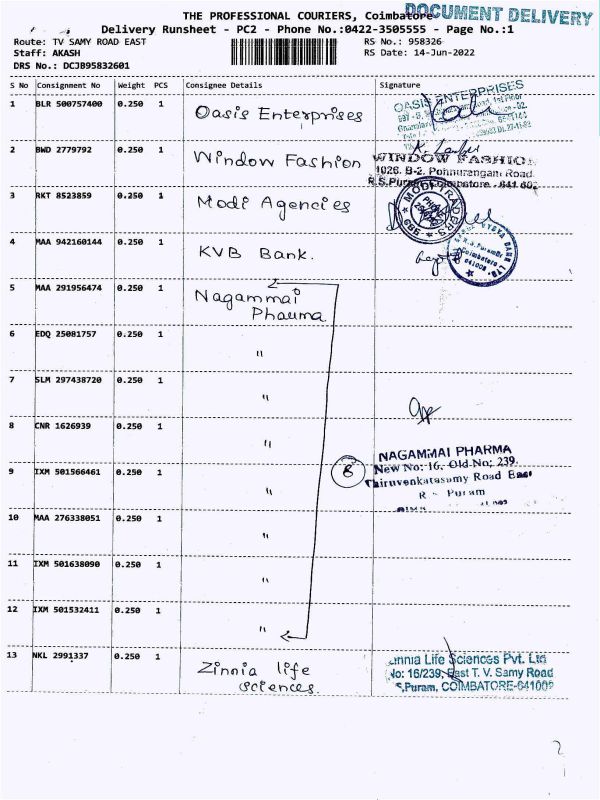 THE PROFESSIONAL COURIERS, Coimbatore
DOCUMENT DELIVERY
Delivery Runsheet - PC2 - Phone No.:0422-3505555 - Page No.:1
Route: TV SAMY ROAD EAST
RS No.: 958326
Staff: AKASH
RS Date: 14-Jun-2022
DRS No.: DCJB95832601
S No Consignment No Weight PCS Consignee Details Signature
1 BLR 500757400 0.250 1 Oasis Enterprises
OASIS ENTERPRISES
2 BWD 2779792 0.250 1 Window Fashion
WINDOW FASHION
1026, B-2, Ponnurangam Road
R.S.Puram, Coimbatore - 641 002
3 RKT 8523859 0.250 1 Modi Agencies
MODI TRADERS
4 MAA 942160144 0.250 1 KVB Bank.
R.S. Puram
Coimbatore
5 MAA 291956474 0.250 1 Nagammai
Pharma
6 EDQ 25081757 0.250 1 "
7 SLM 297438720 0.250 1 "
8 CNR 1626939 0.250 1 "
8
NAGAMMAI PHARMA
New No: 16, Old No: 239,
Thiruvenkatasamy Road East
R S Puram
9 IXM 501566461 0.250 1 "
10 MAA 276338051 0.250 1 "
11 IXM 501638090 0.250 1 "
12 IXM 501532411 0.250 1 "
13 NKL 2991337 0.250 1 Zinnia life
sciences
Zinnia Life Sciences Pvt. Ltd
No: 16/239, East T. V. Samy Road
S.Puram, COIMBATORE-641002
2